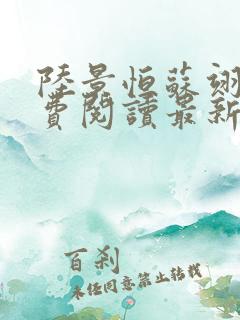 陸景恒蘇翊
費閱讀最新
百剎
未经同意禁止转载